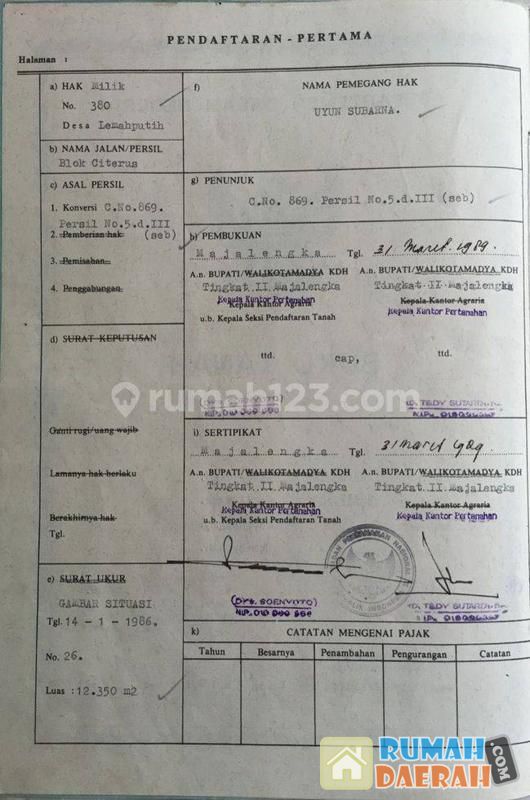 PENDAFTARAN - PERTAMA
Halaman :
a) HAK Milik
No. 380
Desa Lemahputih
b) NAMA JALAN/PERSIL
Blok Citerus
c) ASAL PERSIL
1. Konversi C.No.869.
Persil No.5.d.III
2. Pemberian hak (seb)
3. Pemisahan
4. Penggabungan
d) SURAT KEPUTUSAN
Ganti rugi/uang wajib
Lamanya hak berlaku
Berakhirnya hak
Tgl.
e) SURAT UKUR
GAMBAR SITUASI
Tgl. 14 - 1 - 1986.
No. 26.
Luas : 12.350 m2
f) NAMA PEMEGANG HAK
UYUN SUBARNA.
g) PENUNJUK
C.No. 869. Persil No.5.d.III (seb)
h) PEMBUKUAN
Majalengka Tgl. 31 Maret 1989.
A.n. BUPATI/WALIKOTAMADYA KDH A.n. BUPATI/WALIKOTAMADYA KDH
Tingkat II Majalengka Tingkat II Majalengka
Kepala Kantor Agraria Kepala Kantor Agraria
Kepala Kantor Pertanahan Kepala Kantor Pertanahan
u.b. Kepala Seksi Pendaftaran Tanah
ttd. cap, ttd.
rumah123.com
i) SERTIPIKAT
Majalengka Tgl. 31 Maret 1989.
A.n. BUPATI/WALIKOTAMADYA KDH A.n. BUPATI/WALIKOTAMADYA KDH
Tingkat II Majalengka Tingkat II Majalengka
Kepala Kantor Agraria Kepala Kantor Agraria
Kepala Kantor Pertanahan Kepala Kantor Pertanahan
u.b. Kepala Seksi Pendaftaran Tanah
(Drs. SOENYOTO)
k) CATATAN MENGENAI PAJAK
Tahun Besarnya Penambahan Pengurangan Catatan
RUMAH
DAERAH.COM